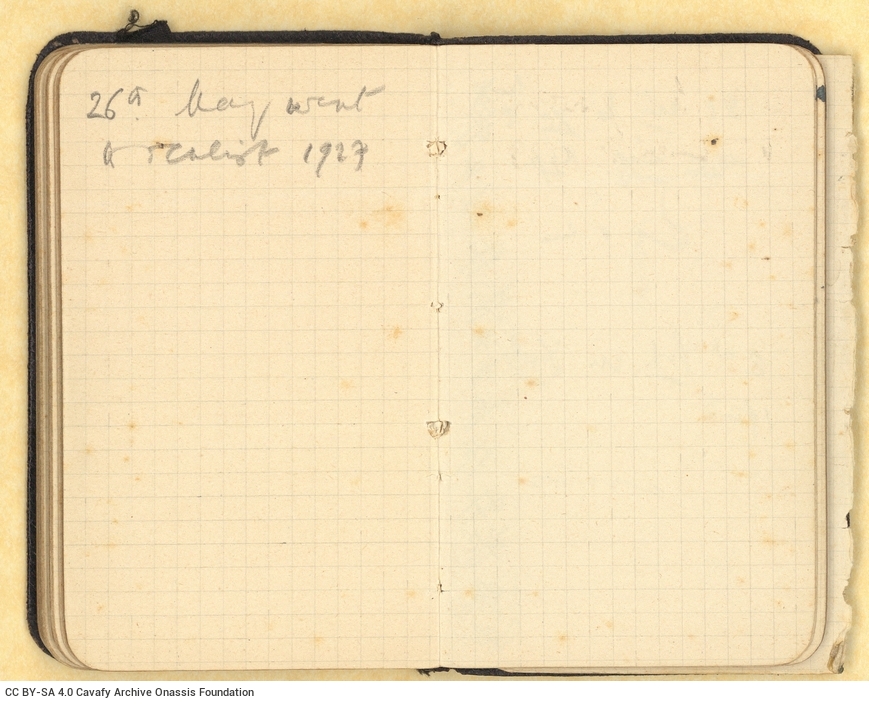 26th May went
to oculist 1927
CC BY-SA 4.0 Cavafy Archive Onassis Foundation